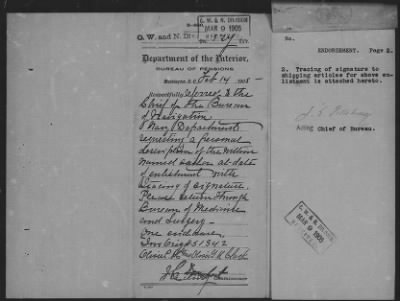 O. W. and N. Div.
C. W. & N. DIVISION
MAR 9 1905
Department of the Interior,
BUREAU OF PENSIONS
Washington, D. C., Feb 14, 1905
Respectfully referred to the
Chief of the Bureau
of Navigation
Navy Department
requesting a personal
description of the within
named sailor at date
of enlistment with
tracing of signature.
Please return through
Bureau of Medicine
and Surgery—
One enclosure.
51342
No.
ENDORSEMENT. Page 2.
2. Tracing of signature to
shipping articles for above en-
listment is attached hereto.
Acting Chief of Bureau.
C. W. & N. DIVISION
MAR 9 1905